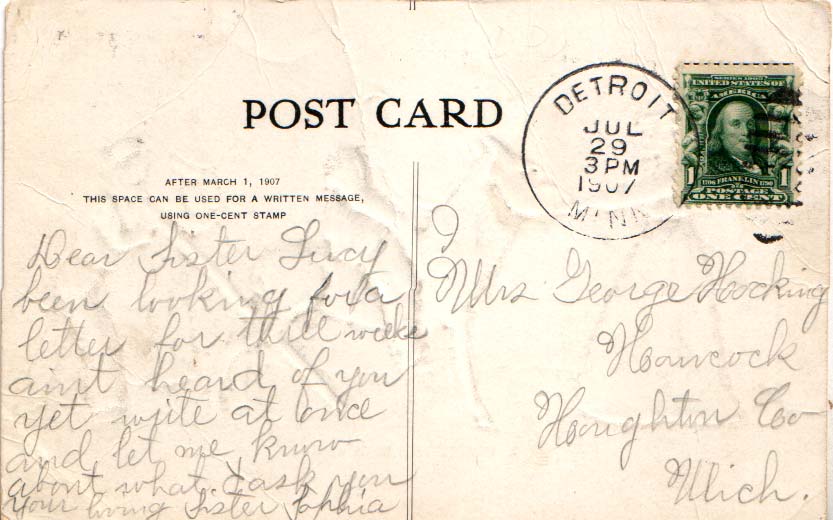 POST CARD
AFTER MARCH 1, 1907
THIS SPACE CAN BE USED FOR A WRITTEN MESSAGE,
USING ONE-CENT STAMP
DETROIT
JUL
29
3 PM
1907
MINN
SERIES 1902
UNITED STATES OF
AMERICA
1706 FRANKLIN 1790
1 POSTAGE 1
ONE CENT
Dear Sister Lucy
been looking for a
letter for three weeks
aint heard of you
yet write at once
and let me know
about what I ask you
your loving Sister Sophia
Mrs George Hocking
Hancock
Houghton Co
Mich.